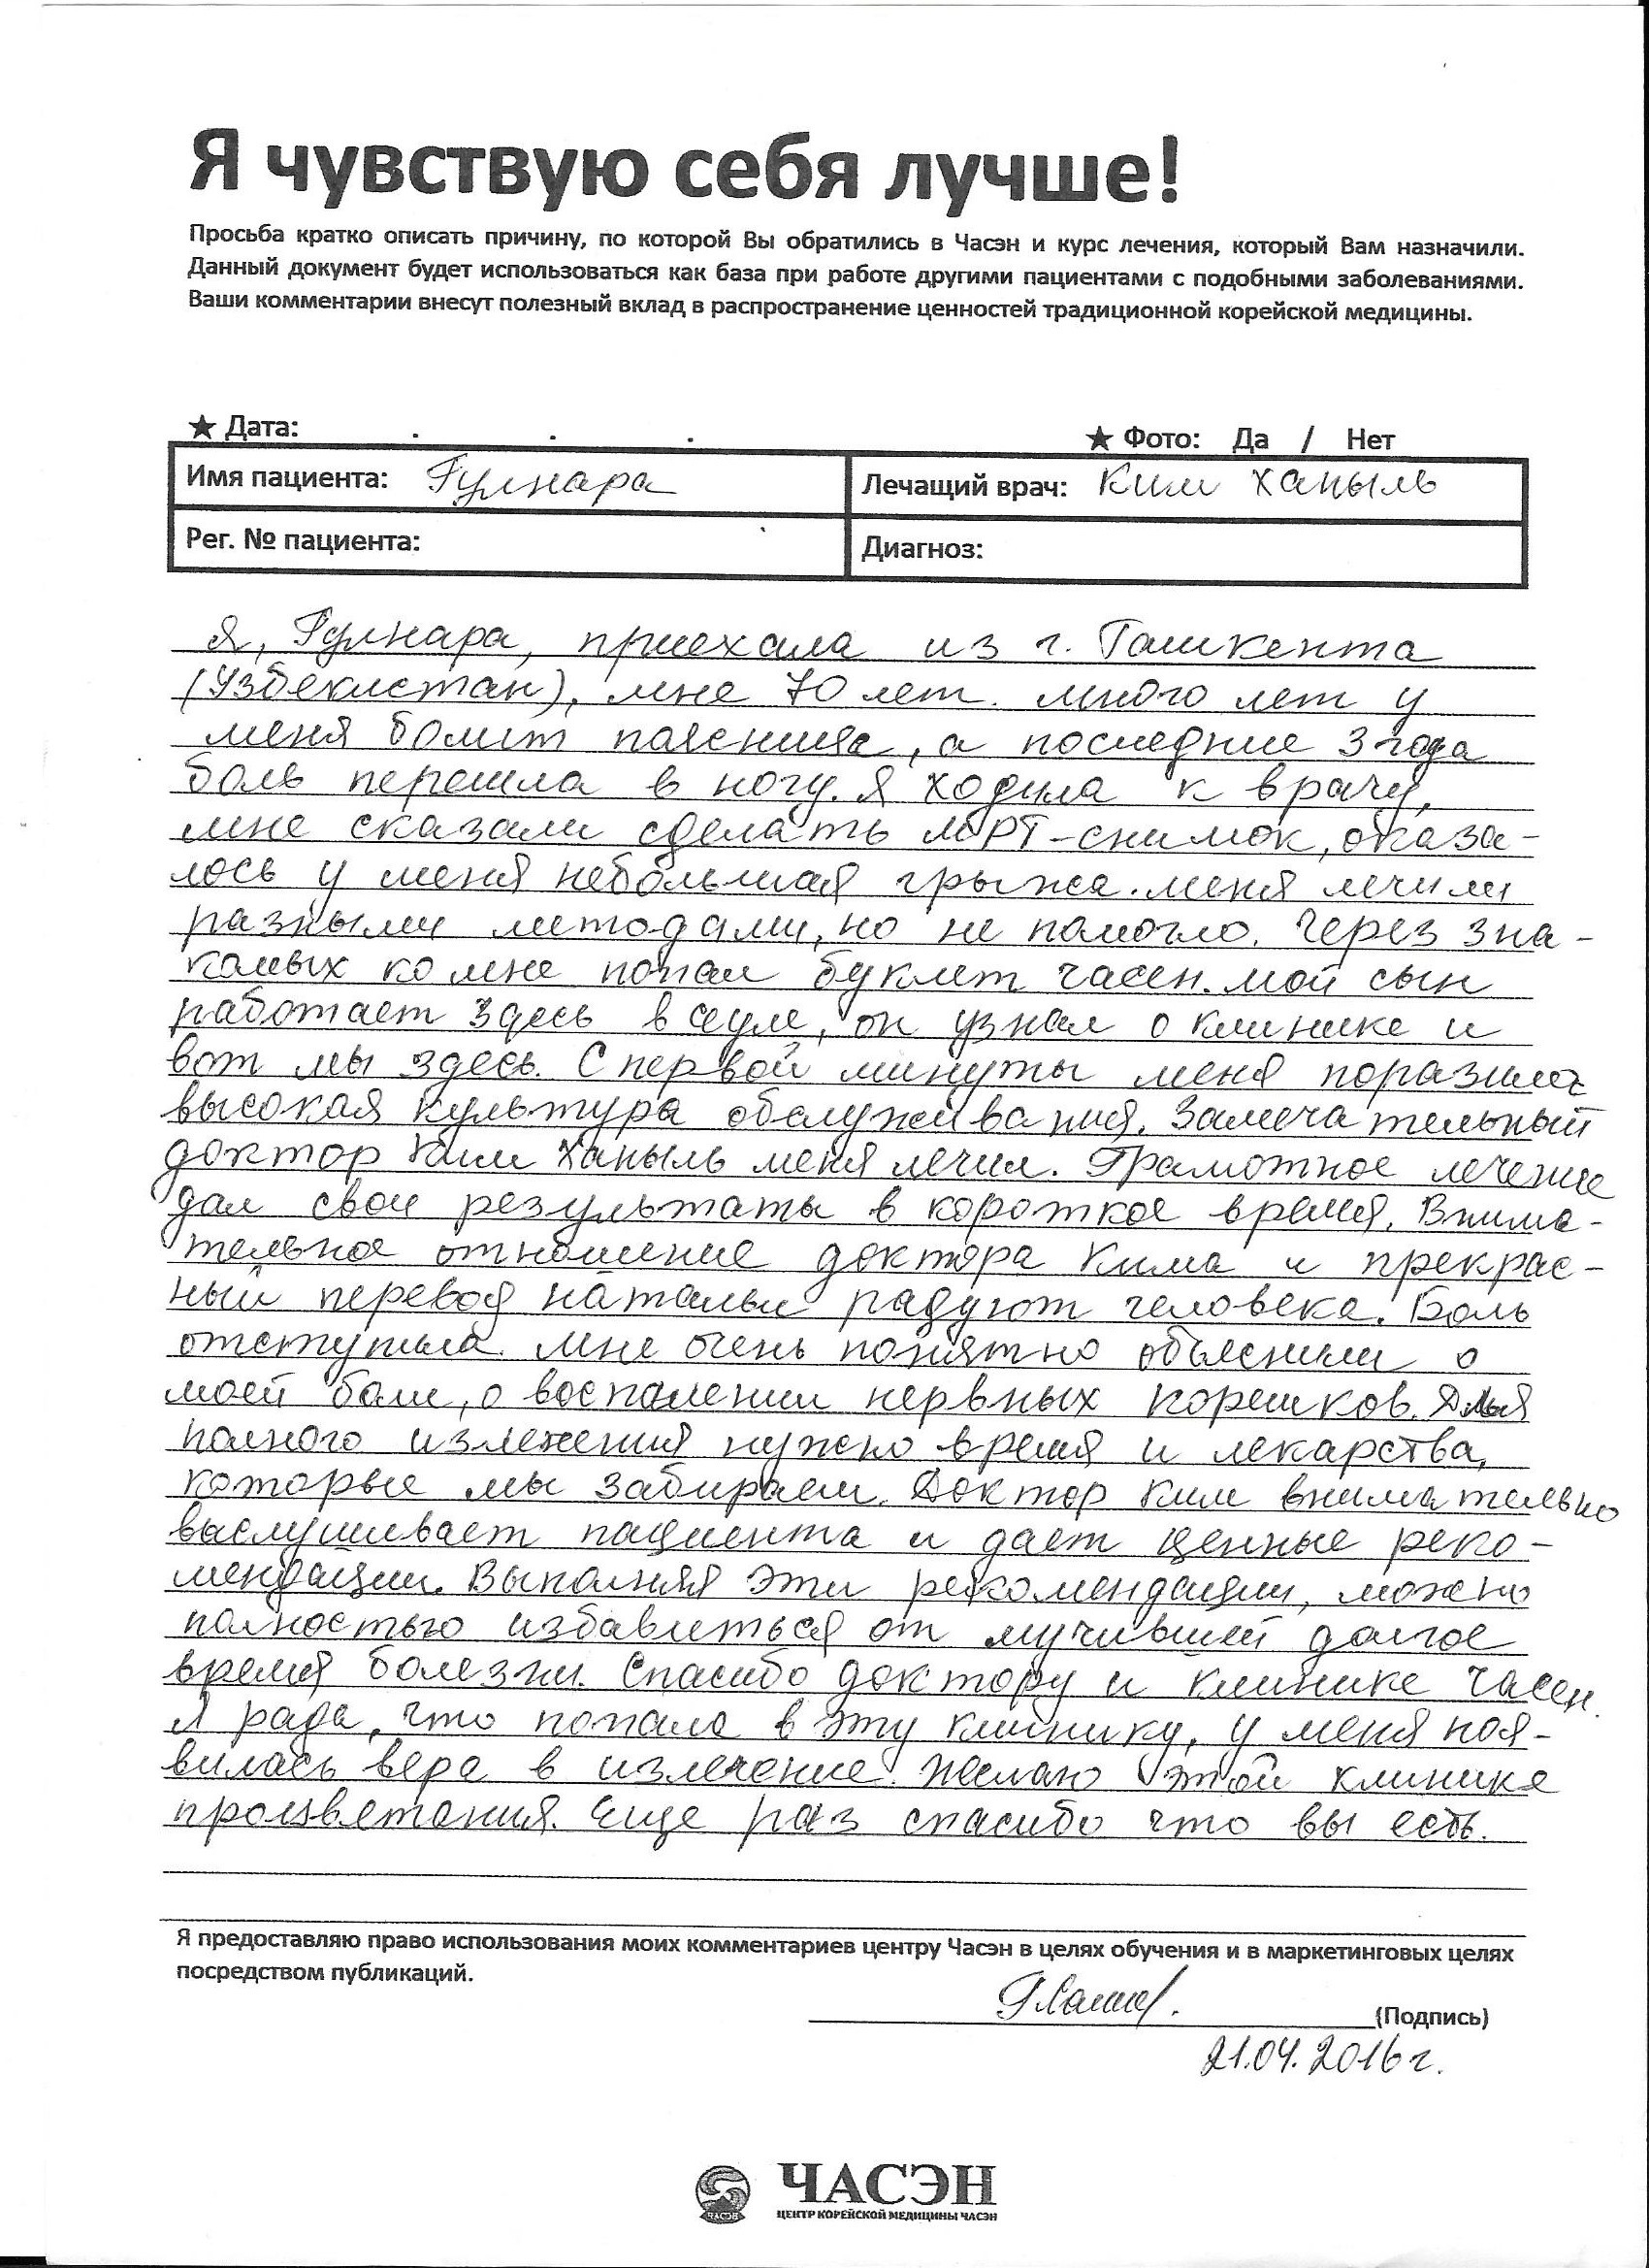 Я чувствую себя лучше!
Просьба кратко описать причину, по которой Вы обратились в Часэн и курс лечения, который Вам назначили.
Данный документ будет использоваться как база при работе другими пациентами с подобными заболеваниями.
Ваши комментарии внесут полезный вклад в распространение ценностей традиционной корейской медицины.
★ Дата: . . . ★ Фото: Да / Нет
Имя пациента: Гулнара Лечащий врач: Ким Ханыль
Рег. № пациента: Диагноз:
Я, Гулнара, приехала из г. Ташкента
(Узбекистан), мне 70 лет. Много лет у
меня болит паясница, а последние 3 года
боль перешла в ногу. Я ходила к врачу,
мне сказали сделать МРТ-снимок, оказа-
лось у меня небольшая грыжа. Меня лечили
разными методами, но не помогло. Через зна-
комых ко мне попал буклет Часен. Мой сын
работает здесь в Сеуле, он узнал о клинике и
вот мы здесь. С первой минуты меня поразила
высокая культура обслуживания. Замечательный
доктор Ким Ханыль меня лечил. Грамотное лечение
дал свои результаты в короткое время. Внима-
тельное отношение доктора Кима и прекрас-
ный перевод Натальи радуют человека. Боль
отступила. Мне очень понятно объяснили о
моей боли, о воспалении нервных корешков. Для
полного излечения нужно время и лекарства,
которые мы забираем. Доктор Ким внимательно
выслушивает пациента и дает ценные реко-
мендации. Выполняя эти рекомендации, можно
полностью избавиться от мучившей долгое
время болезни. Спасибо доктору и клинике Часен.
Я рада, что попала в эту клинику, у меня поя-
вилась вера в излечение. Желаю этой клинике
процветания. Еще раз спасибо что вы есть.
Я предоставляю право использования моих комментариев центру Часэн в целях обучения и в маркетинговых целях
посредством публикаций.
(Подпись)
21.04.2016 г.
ЧАСЭН
ЧАСЭН
ЦЕНТР КОРЕЙСКОЙ МЕДИЦИНЫ ЧАСЭН